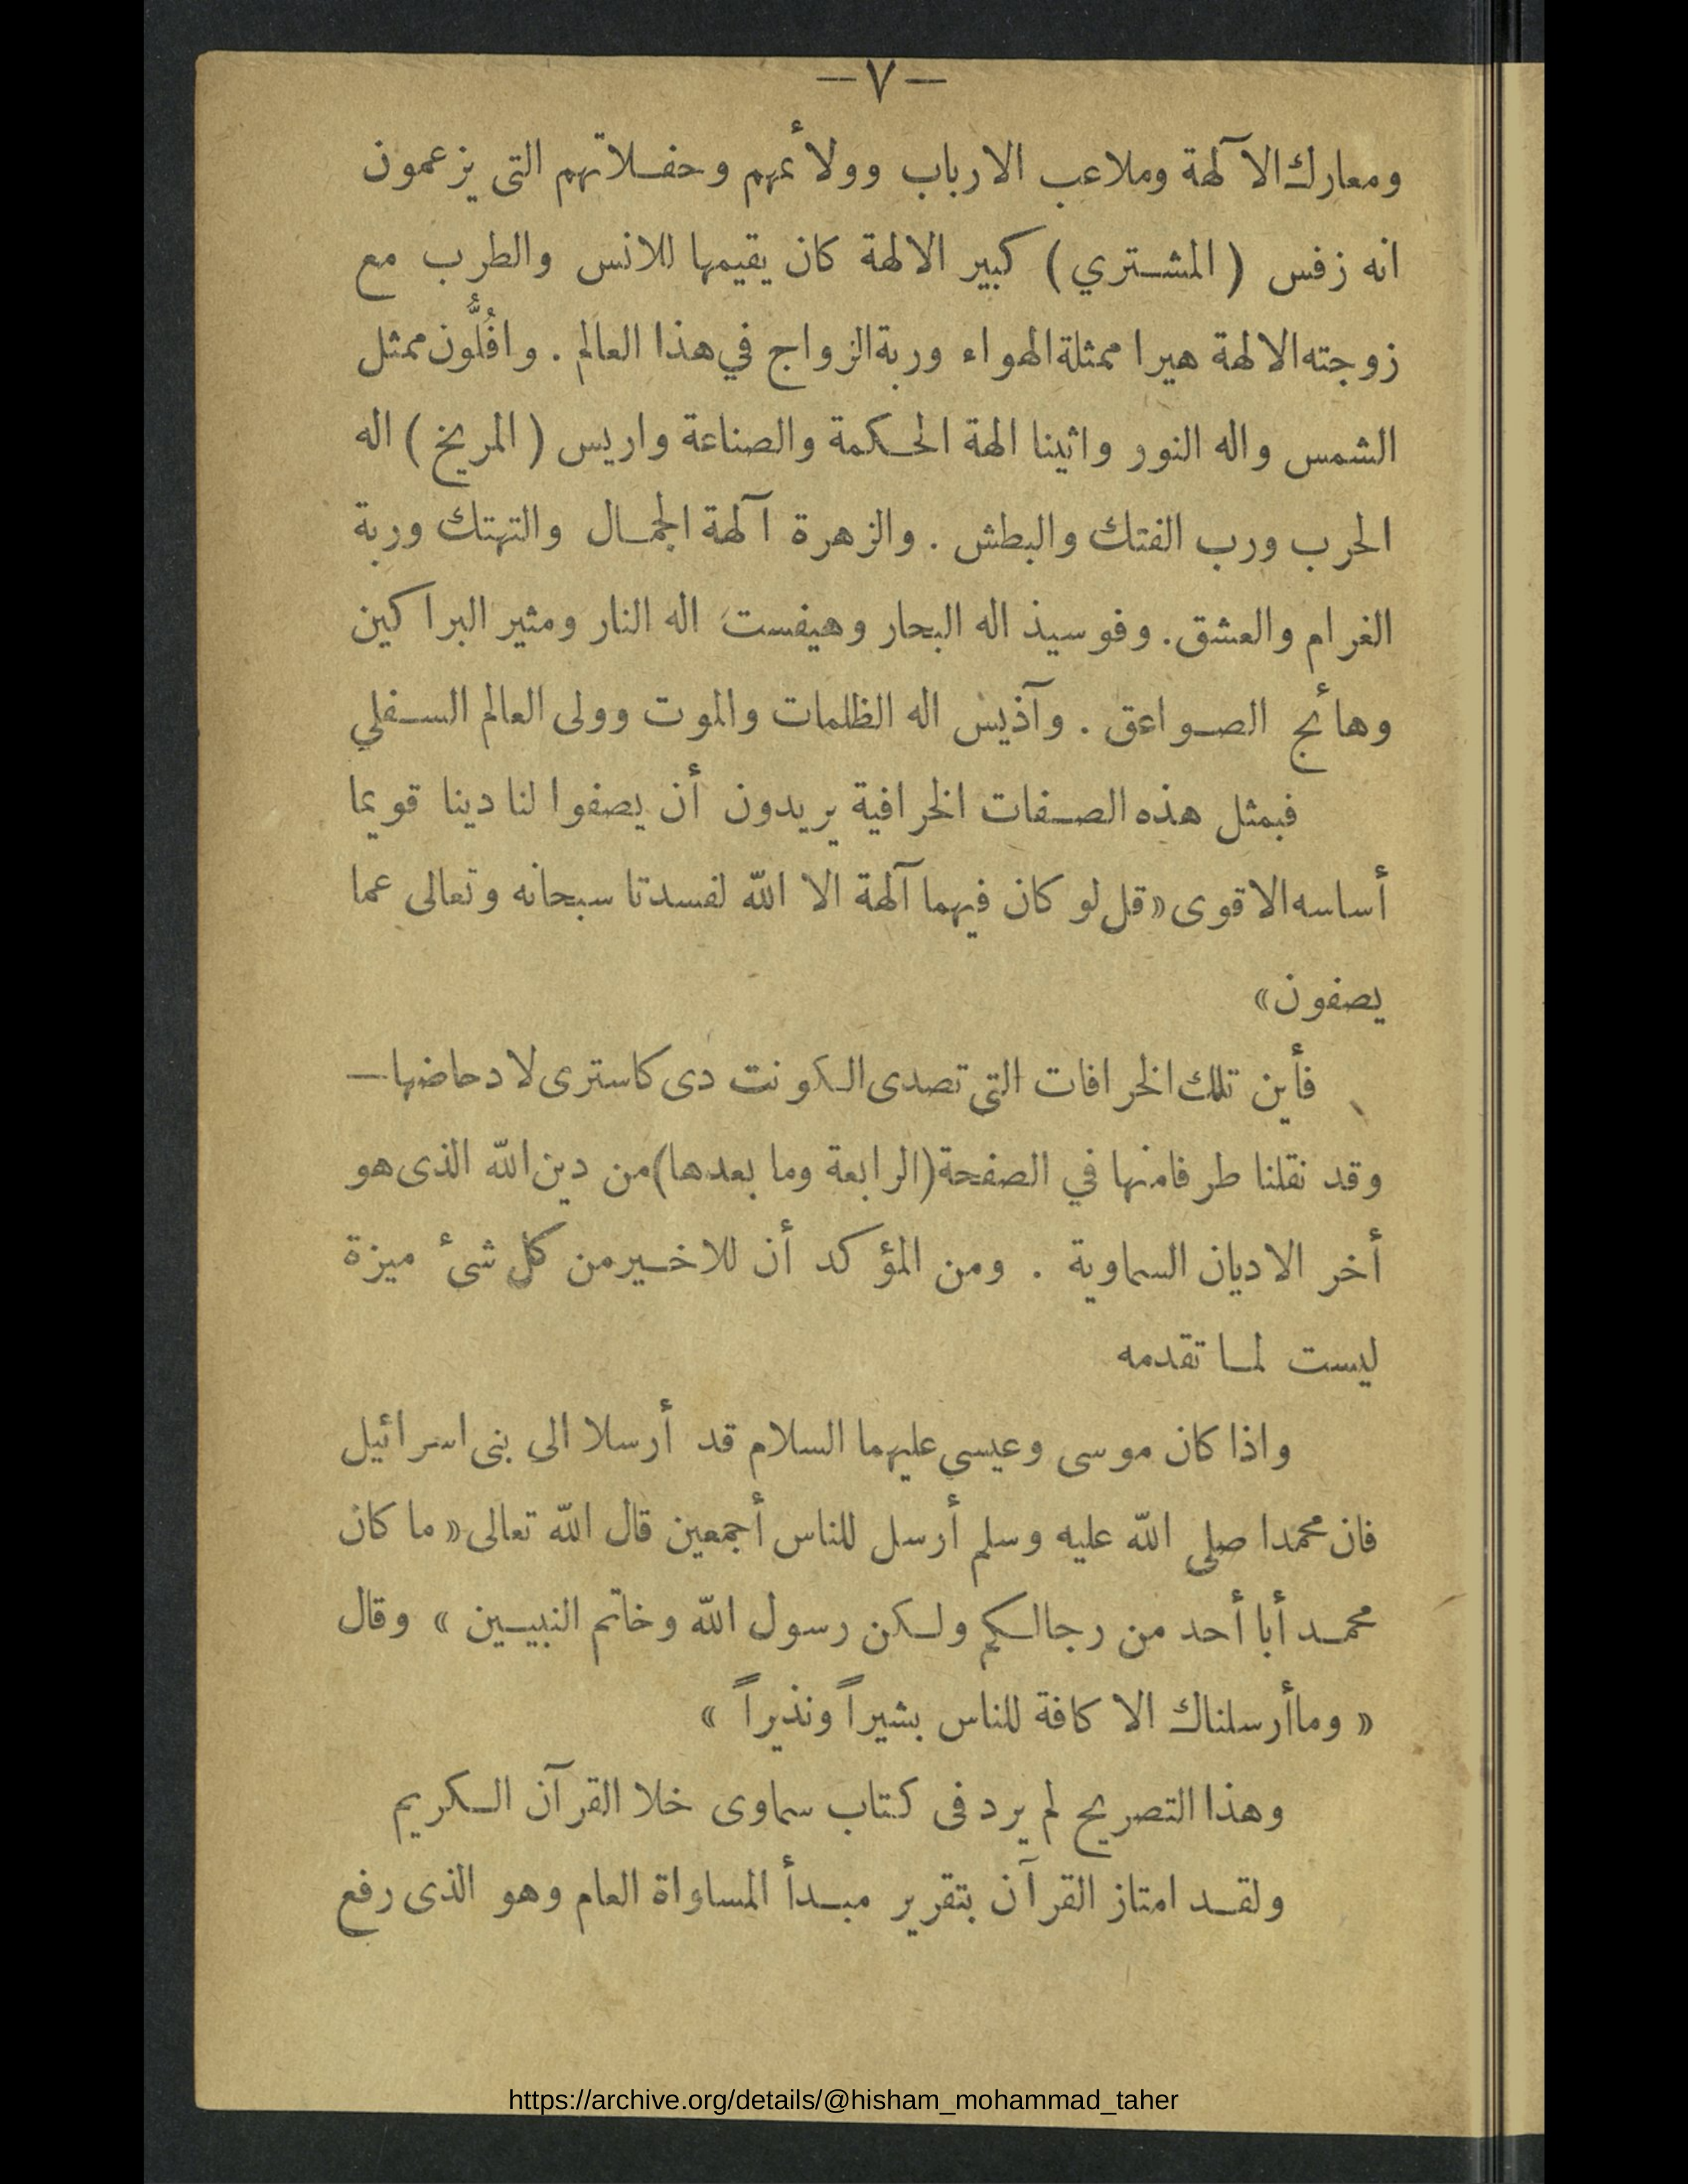 — ٧ —
ومعارك الآلهة وملاعب الارباب وولأعهم وحفلاتهم التى يزعمون
انه زفس ( المشتري ) كبير الالهة كان يقيمها للانس والطرب مع
زوجته الالهة هيرا ممثلة الهواء وربة الزواج في هذا العالم . وافُلُّون ممثل
الشمس واله النور واثينا الهة الحكمة والصناعة واريس ( المريخ ) اله
الحرب ورب الفتك والبطش . والزهرة آلهة الجمال والتهتك وربة
الغرام والعشق . وفوسيذ اله البحار وهيفست اله النار ومثير البراكين
وهائج الصواعق . وآذيس اله الظلمات والموت وولى العالم السفلي
فبمثل هذه الصفات الخرافية يريدون أن يصفوا لنا دينا قويما
أساسه الاقوى « قل لو كان فيهما آلهة الا الله لفسدتا سبحانه وتعالى عما
يصفون »
فأين تلك الخرافات التى تصدى الكونت دى كاسترى لا دحاضها —
وقد نقلنا طرفا منها في الصفحة ( الرابعة وما بعدها ) من دين الله الذى هو
أخر الاديان السماوية . ومن المؤكد أن للاخير من كل شئ ميزة
ليست لما تقدمه
واذا كان موسى وعيسى عليهما السلام قد أرسلا الى بنى اسرائيل
فان محمدا صلى الله عليه وسلم أرسل للناس أجمعين قال الله تعالى « ما كان
محمد أبا أحد من رجالكم ولكن رسول الله وخاتم النبيين » وقال
« وما أرسلناك الا كافة للناس بشيراً ونذيراً »
وهذا التصريح لم يرد فى كتاب سماوى خلا القرآن الكريم
ولقد امتاز القرآن بتقرير مبدأ المساواة العام وهو الذى رفع
https://archive.org/details/@hisham_mohammad_taher